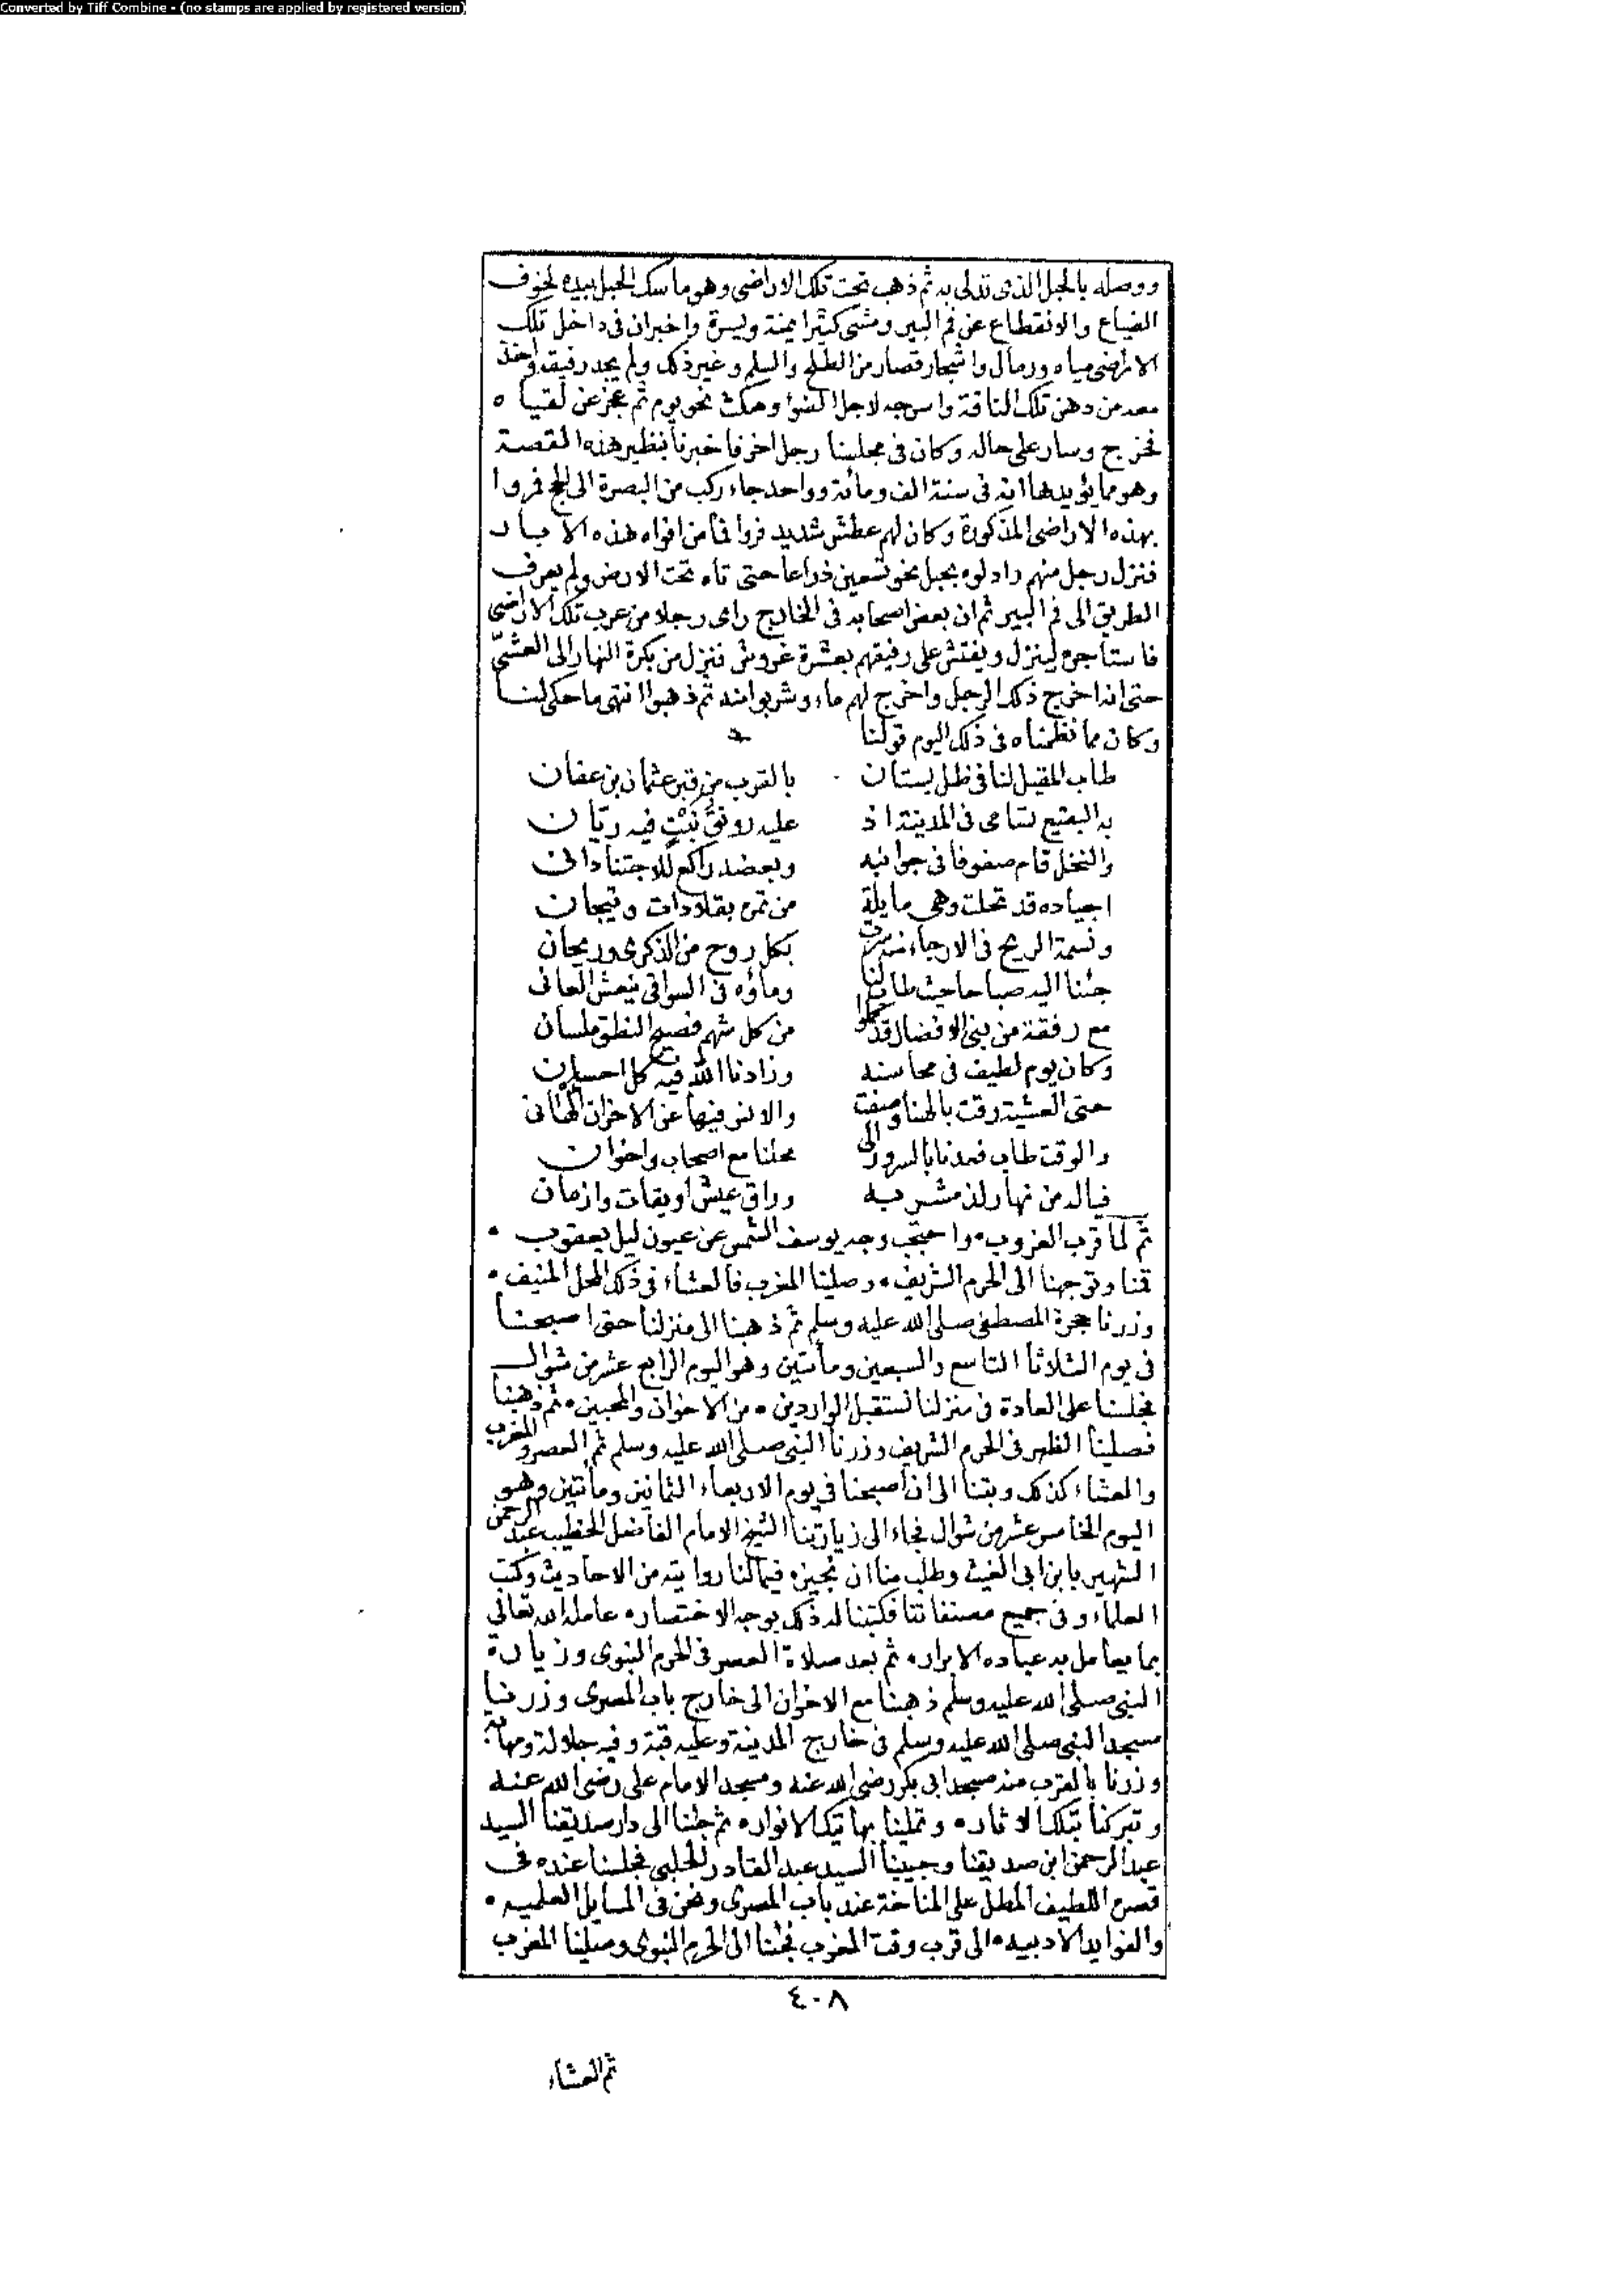 Converted by Tiff Combine - (no stamps are applied by registered version)
ووصله بالحبل الذى تدلى به ثم ذهب تحت تلك الاراضى وهو ماسك الحبل بيده لخوف
الضياع والانقطاع عن فم البير ومشى كثيرا يمنة ويسرة واخبران فى داخل تلك
الاراضى مياه ورمال واشجار قصار من الطلح والسلم وغير ذلك ولم يجد رفيقه واخذ
معه من دهن تلك الناقة واسرجه لاجل الضوا ومكث نحو يوم ثم عجز عن لقياه
فخرج وسار على حاله وكان فى مجلسنا رجل اخر فاخبرنا بنظير هذه القصة
وهو مما يؤيدها انه فى سنة الف ومائة وواحد جاء ركب من البصرة الى الحج فمروا
بهذه الاراضى المذكورة وكان لهم عطش شديد فروا فما من افواه هذه الابار
فنزل رجل منهم وادلوه بحبل نحو تسعين ذراعا حتى تاه تحت الارض ولم يعرف
الطريق الى فم البير ثم ان بعض اصحابه فى الخارج راى رجلا من عرب تلك الاراضى
فاستاجره لينزل ويفتش على رفيقهم بعشرة غروش فنزل من بكرة النهار الى العشىّ
حتى اذا اخرج ذلك الرجل واخرج لهم ماء وشربوا منه ثم ذهبوا انتهى ما حكى لنا
وكان مما نظمناه فى ذلك اليوم قولنا
طاب المقيل لنا فى ظل بستان بالقرب من قبر عثمان بن عفان
به البقيع تسامى فى المدينة اذ عليه رونق نبت فيه ريّان
والنخل قام صفوفا فى جوانبه وبعضه راكع للاجتنا دانى
اجياده قد تحلت وهى مايلة من تمره بقلادات وتيجان
ونسمة الريح فى الارجاء سرت بكل روح من الذكرى وريحان
جئنا اليه صباحا حيث طاب لنا وماؤه فى السواقى ينعش العانى
مع رفقة من بنى الافضال قد من كل شهم فصيح النطق ملسان
وكان يوم لطيف فى محاسنه وزادنا الله فيه كل احسان
حتى العشية رقت بالهنا وصفت والانس فيها عن الاخوان
والوقت طاب فعدنا بالسرور الى محلنا مع اصحاب واخوان
فياله من نهار لذ مشربه وراق عيش اويقات وازمان
ثم لما قرب الغروب • واحتجب وجه يوسف الشمس عن عيون ليل يعقوب •
قمنا وتوجهنا الى الحرم الشريف • وصلينا المغرب فالعشاء فى ذلك المحل المنيف •
وزرنا حجرة المصطفى صلى الله عليه وسلم ثم ذهبنا الى منزلنا حتى اصبحنا
فى يوم الثلاثا التاسع والسبعين ومائتين وهو اليوم الرابع عشر من شوال
فجلسنا على العادة فى منزلنا نستقبل الواردين • من الاخوان والمحبين • ثم ذهبنا
فصلينا الظهر فى الحرم الشريف وزرنا النبى صلى الله عليه وسلم ثم العصر والمغرب
والعشاء كذلك وبتنا الى ان اصبحنا فى يوم الاربعاء الثمانين ومائتين وهو
اليوم الخامس عشر من شوال فجاء الى زيارتنا الشيخ الامام الفاضل الخطيب عبد الرحمن
الشهير بابن ابى الغيث وطلب منا ان نجيزه فيما لنا روايته من الاحاديث وكتب
العلماء وفى جميع مصنفاتنا فكتبنا له ذلك بوجه الاختصار • عامله الله تعالى
بما يعامل به عباده الابرار • ثم بعد صلاة العصر فى الحرم النبوى وزيارة
النبى صلى الله عليه وسلم ذهبنا مع الاخوان الى خارج باب المصرى وزرنا
مسجد النبى صلى الله عليه وسلم فى خارج المدينة وعليه قبة وفيه جلالة ومهابة
وزرنا بالقرب منه مسجد ابى بكر رضى الله عنه ومسجد الامام على رضى الله عنه
وتبركنا بتلك الاثار • وتملينا بهاتيك الانوار • ثم جئنا الى دار صديقنا السيد
عبد الرحمن ابن صديقنا وحبيبنا السيد عبد القادر الحلبى فجلسنا عنده فى
قصره اللطيف المطل على المناخة عند باب المصرى ونحن فى المسايل العلميه •
والفوايد الادبيه • الى قرب وقت المغرب فجئنا الى الحرم النبوى وصلينا المغرب
٤٠٨
ثم العشاء